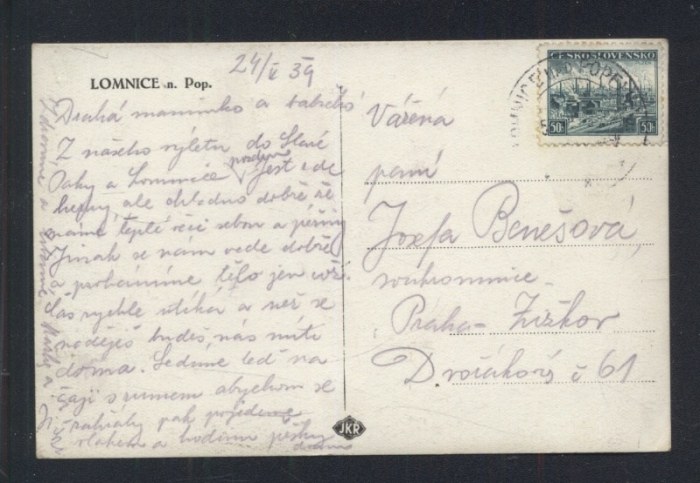 LOMNICE n. Pop.
24/V 39
Drahá maminko a tatíčku
Z našeho výletu do Staré
Paky a Lomnice pozdrav Jest zde
hezky ale chladno dobře že
máme teplé věci sebou a peřiny
Jinak se nám vede dobře
a probíráme tělo jen což
čas rychle utíká a než se
naděješ budeš nás míti
doma. Sedíme teď na
čaji s rumem abychom se
zahřály pak pojedeme
vlakem a hodinu pěšky
domu
ČESKOSLOVENSKO
50h 50h
Vážená
paní
Josefa Benešová
soukromnice
Praha - Žižkov
Dvořákova č 61
JKR